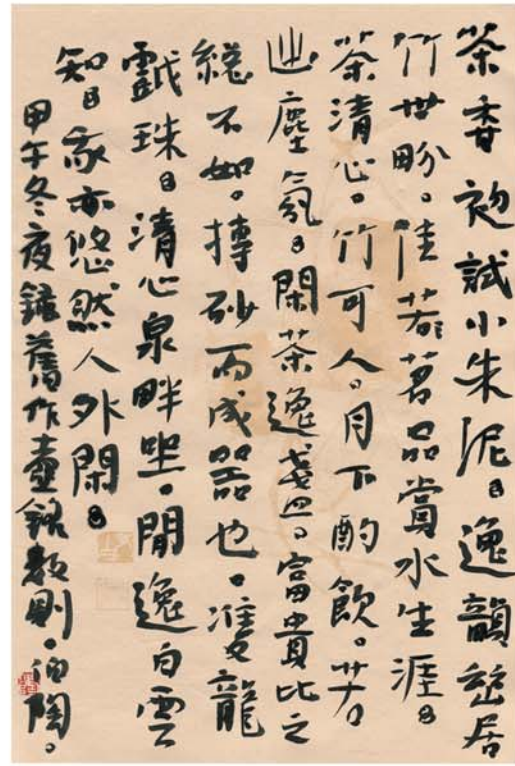 茶香初試小朱泥。逸韻居
竹世。佳茗品賞水生涯。
茶清心。竹可人。月下酌飲。
塵氛。閑茶逸。富貴比之
總不如。摶砂而成器也。雙龍
戲珠。清心泉畔坐。閒逸白雲
知。我亦悠然人外閑。
甲午冬夜錄舊作壺銘數則。白陶。